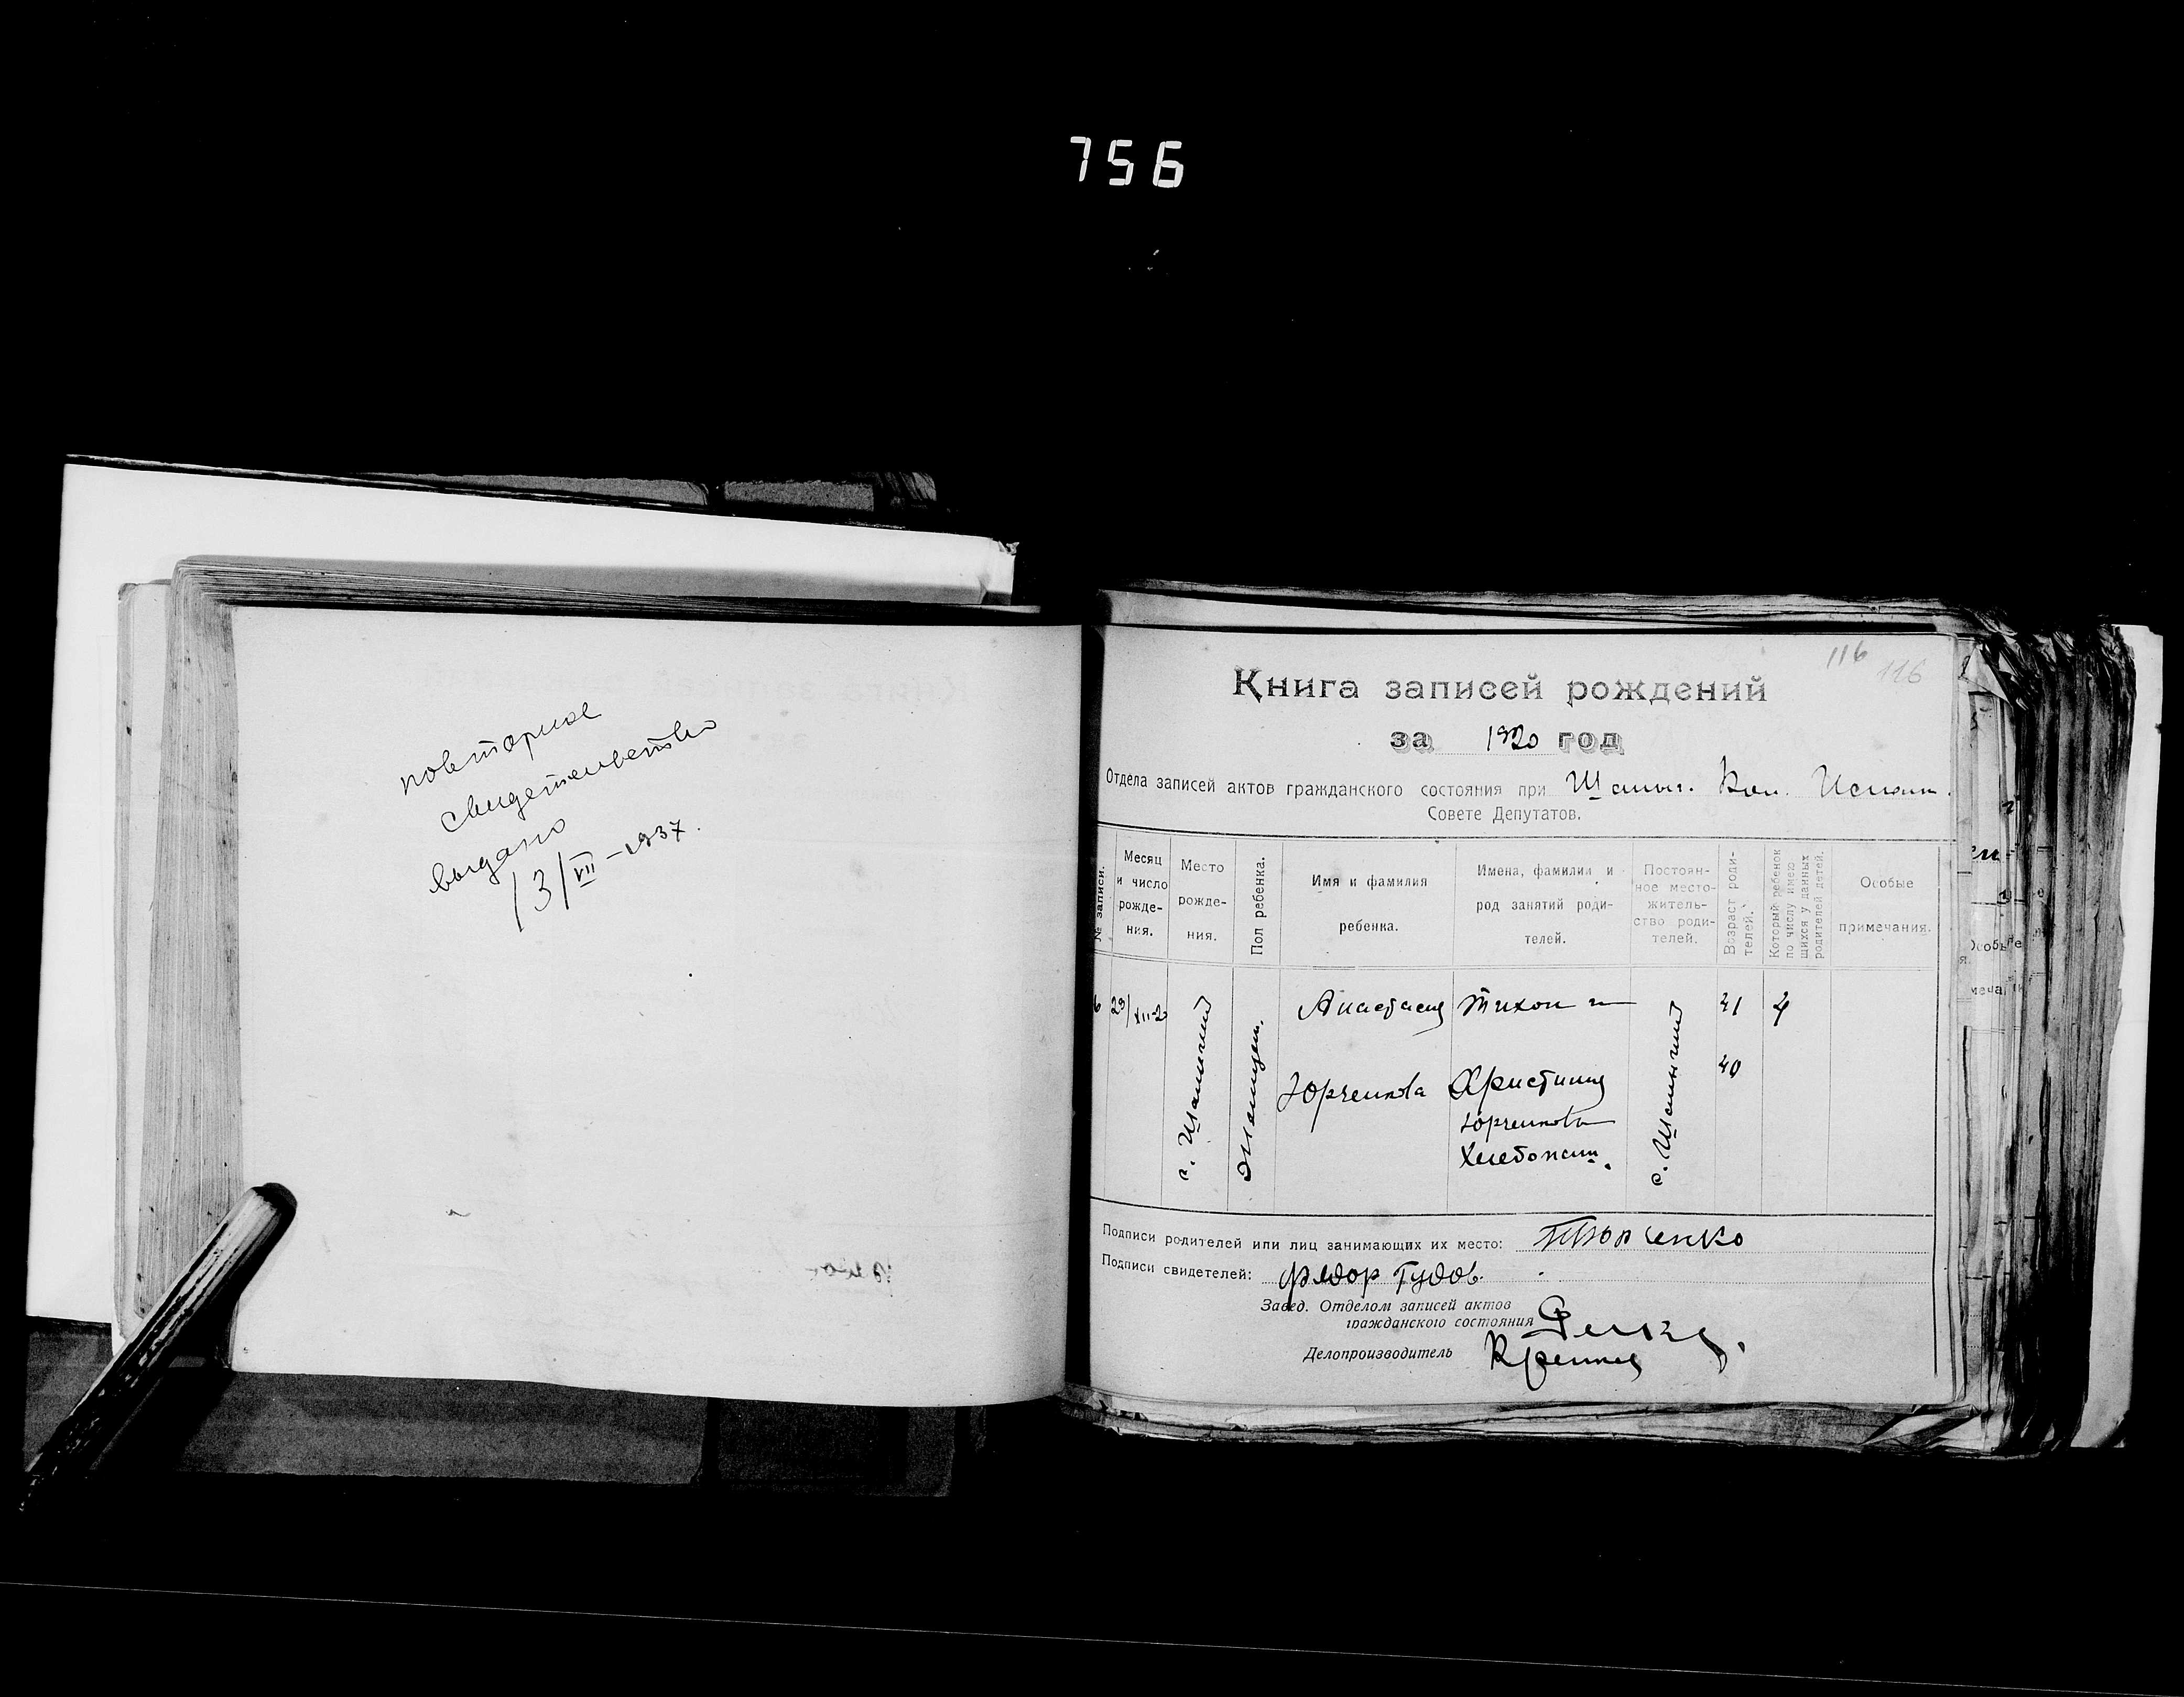 756
повторное
свидетельство
выдано
13/VII–1937.
116 116
Книга записей рождений
за 1920 год
Отдела записей актов гражданского состояния при Шамыч. Вол. Исполк.
Совете Депутатов.
№ записи.
Месяц и число рожде-ния.
Место рожде-ния.
Пол ребенка.
Имя и фамилия ребенка.
Имена, фамилии и род занятий роди-телей.
Постоян-ное место-житель-ство роди-телей.
Возраст роди-телей.
Который ребенок по числу имею щихся у данных родителей детей.
Особые примечания.
6 29/XII-20
Женщен.
Анастасия
Юрченкова
Тихон и
Христиния
Юрченковы
Хлебопаш.
41
40
4
Подписи родителей или лиц занимающих их место: ТЮрченко
Подписи свидетелей: Федор Гудов.
Завед. Отделом записей актов
гражданского состояния
Делопроизводитель